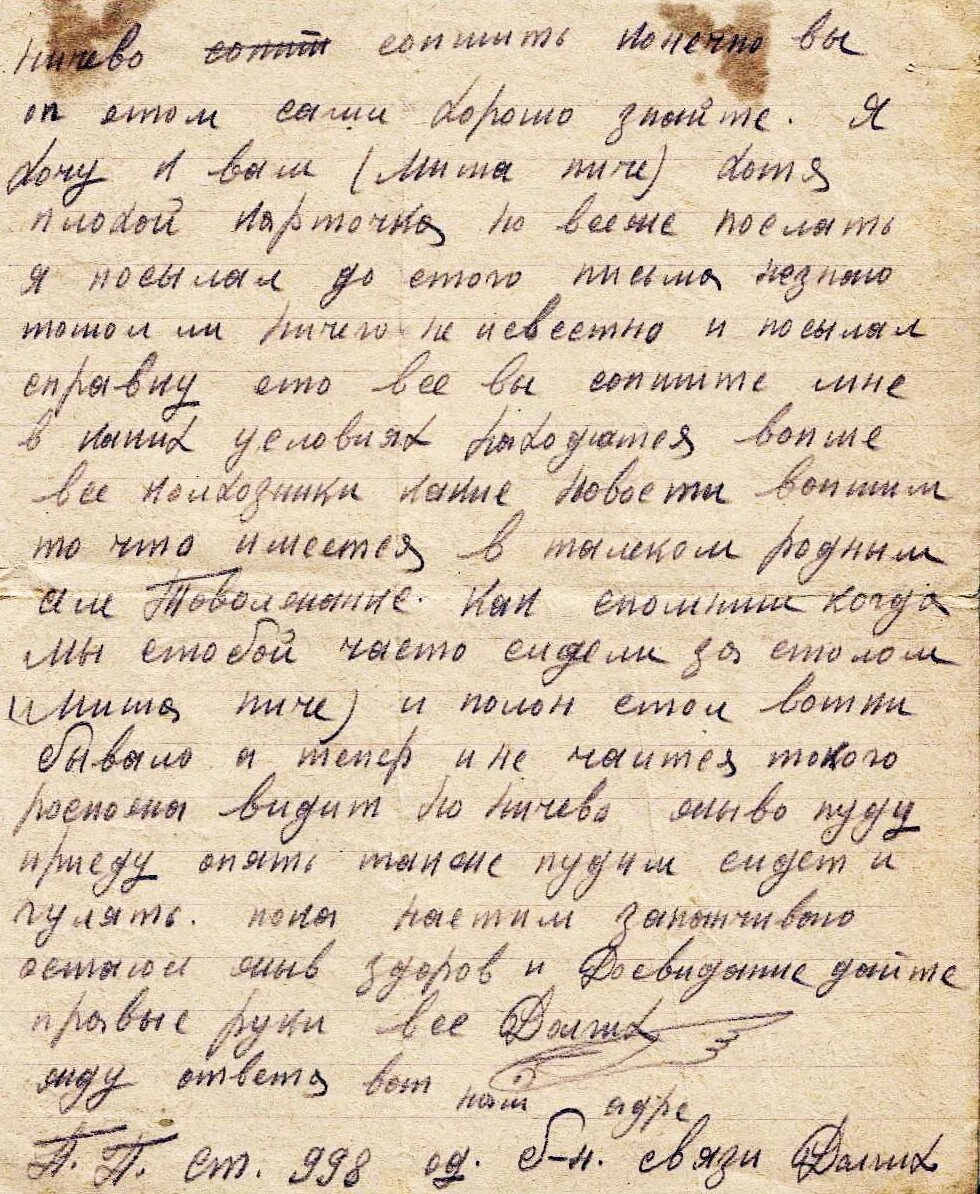 ничево сопит сопшить конечно вы
оп етом сами хорошо знайте. Я
хочу к вам (Миша пиче) хотя
плохой карточка но все же послать
я посылал до етого писма незнаю
тошол ли ничего не исвестно и посылал
справку ето все вы сопшите мне
в каких условиях находится вопше
все колхозники какие новости вопшим
то что имеется в талеком родным
селе Товолжанке. Как спомниш когда
мы стобой часто сидели за столом
(Миша пиче) и полон стол вотки
бывало а тепер и не чаится такого
роспояна видит но ничево жыво пуду
приеду опять также пудим сидет и
гулять. пока настим заканчиваю
остаюс жыв здоров и Досвидание дайте
правые руки все Долгих
жду ответа вот наш адре
П. П. ст. 998 од. б-н. связи Долгих